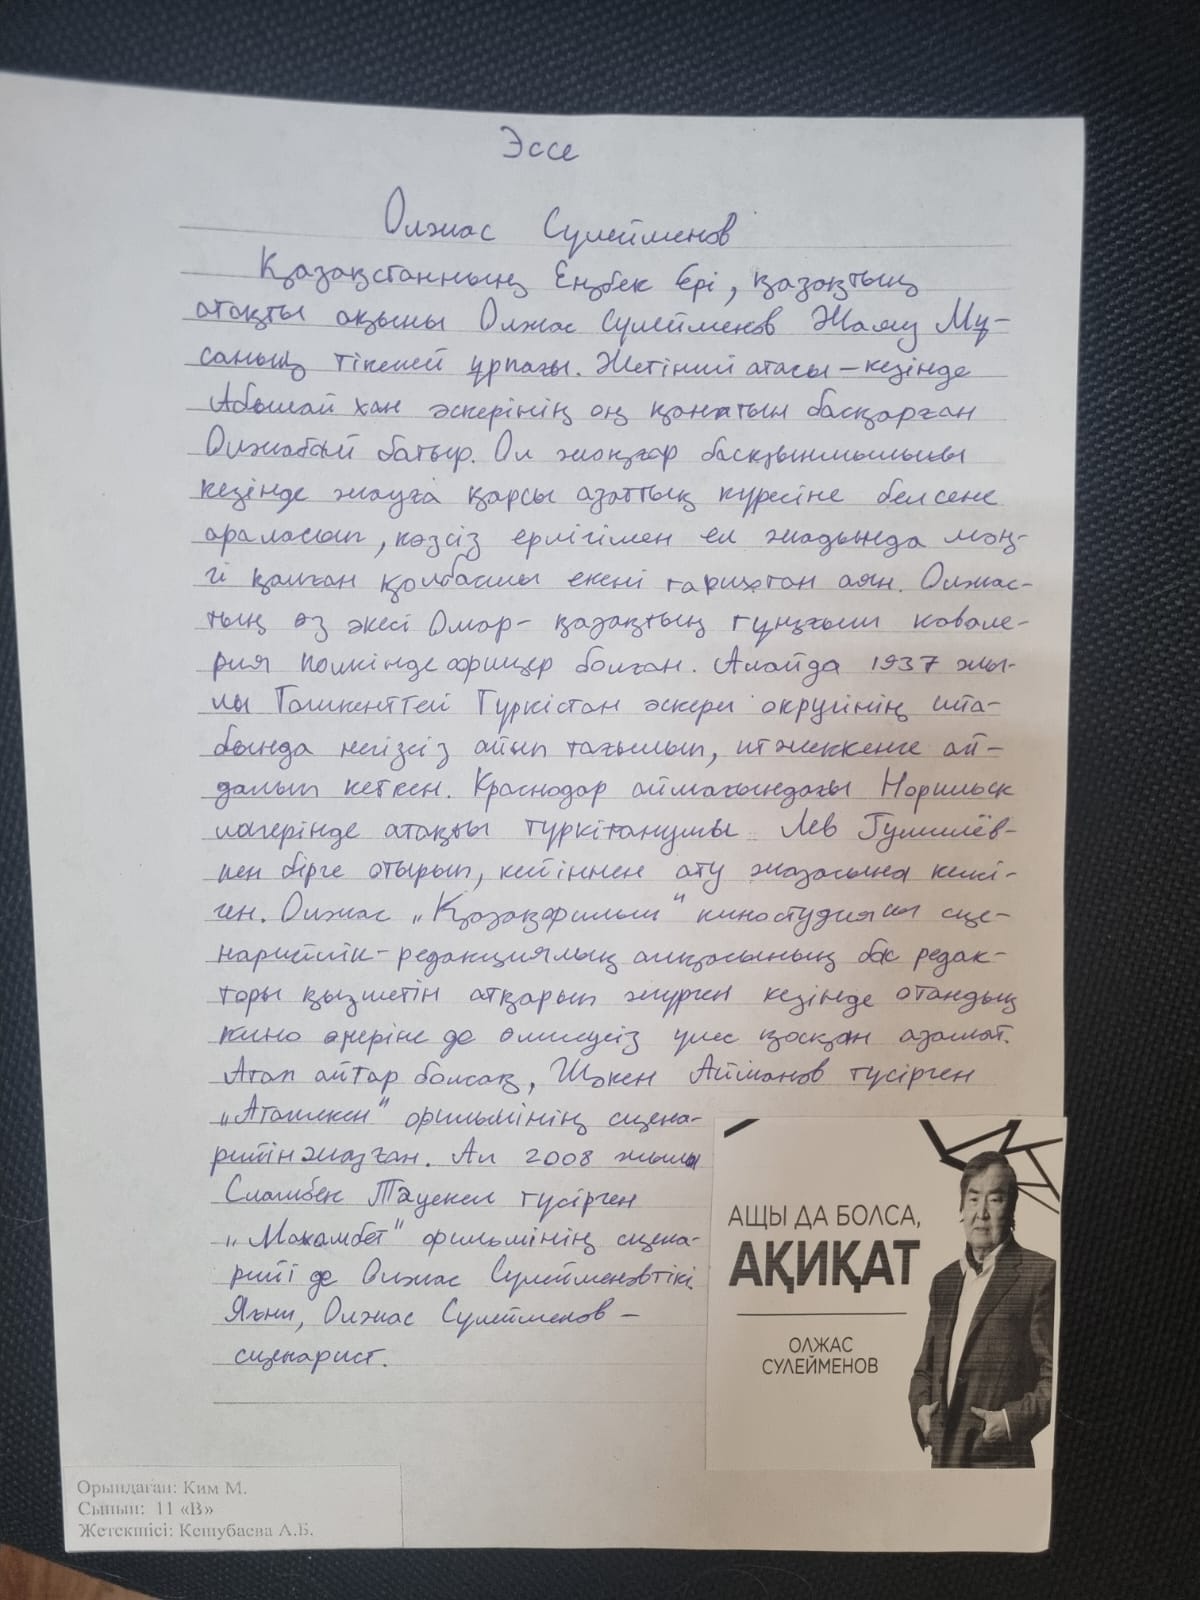 Эссе
Олжас Сулейменов
Қазақстанның Еңбек Ері, қазақтың
атақты ақыны Олжас Сулейменов Жаяу Мұ-
саның тікелей ұрпағы. Жетінші атасы – кезінде
Абылай хан әскерінің оң қанатын басқарған
Олжабай батыр. Ол жоңғар басқыншылығы
кезінде жауға қарсы азаттық күресіне белсене
араласып, көзсіз ерлігімен ел жадында мәң-
гі қалған қолбасшы екені тарихтан аян. Олжас-
тың өз әкесі Омар- қазақтың тұңғыш кавале-
рия полкінде офицер болған. Алайда 1937 жы-
лы Ташкенттегі Түркістан әскери округінің шта-
бында негізсіз айып тағылып, итжеккенге ай-
далып кеткен. Краснодар аймағындағы Норильск
лагерінде атақты түркітанушы Лев Гумилёв-
пен бірге отырып, кейіннен ату жазасына кесі-
ген. Олжас „Қазақфильм" киностудиясы сце-
нарийлік-редакциялық алқасының бас редак-
торы қызметін атқарып жүрген кезінде отандық
кино өнеріне де өлшеусіз үлес қосқан азамат.
Атап айтар болсақ, Шәкен Айманов түсірген
„Атамекен" фильмінің сцена-
рийін жазған. Ал 2008 жылы
Сламбек Тәуекел түсірген
„Махамбет" фильмінің сцена-
рийі де Олжас Сулейменовтікі
Яғни, Олжас Сулейменов –
сценарист.
АЩЫ ДА БОЛСА,
АҚИҚАТ
ОЛЖАС
СУЛЕЙМЕНОВ
Орындаған: Ким М.
Сынып: 11 «В»
Жетекшісі: Кешубаева А.Б.